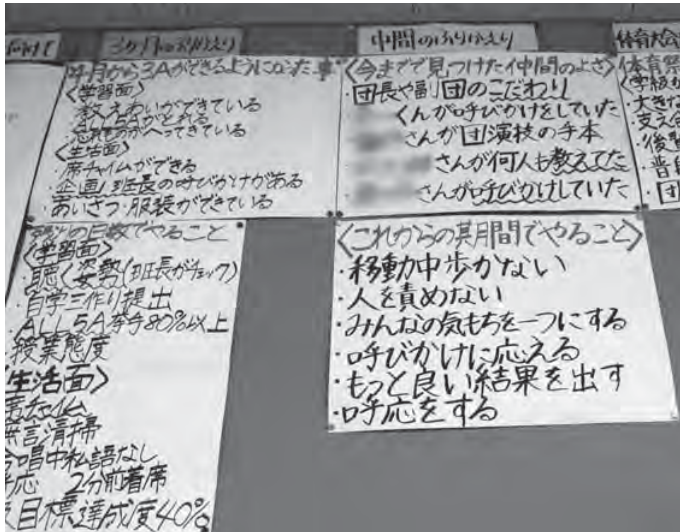 3か月のふりかえり
4月から3Aができるようになった事
〈学習面〉
・教えあいができている
・5Aがとれる
・忘れものがへってきている
〈生活面〉
・席チャイムができる
・企画、班長の呼びかけがある
・あいさつ・服装ができている
の日数でやること
〈学習面〉
・聴く姿勢(班長がチェック)
・自学三作り提出
・ALL 5A 挙手80%以上
・授業態度
〈生活面〉
席チャイム
無言清掃
合唱中私語なし
呼応 2分前着席
目標達成度40%
中間のふりかえり
〈今までで見つけた仲間のよさ〉
・団長や副団のこだわり
くんが呼びかけをしていた
さんが団演技の手本
さんが何人も教えてた
さんが呼びかけしていた
〈これからの期間でやること〉
・移動中歩かない
・人を責めない
・みんなの気もちを一つにする
・呼びかけに応える
・もっと良い結果を出す
・呼応をする
体育大会
体育祭
〈学級が
・大きな
支え合
・後
・普段
・団